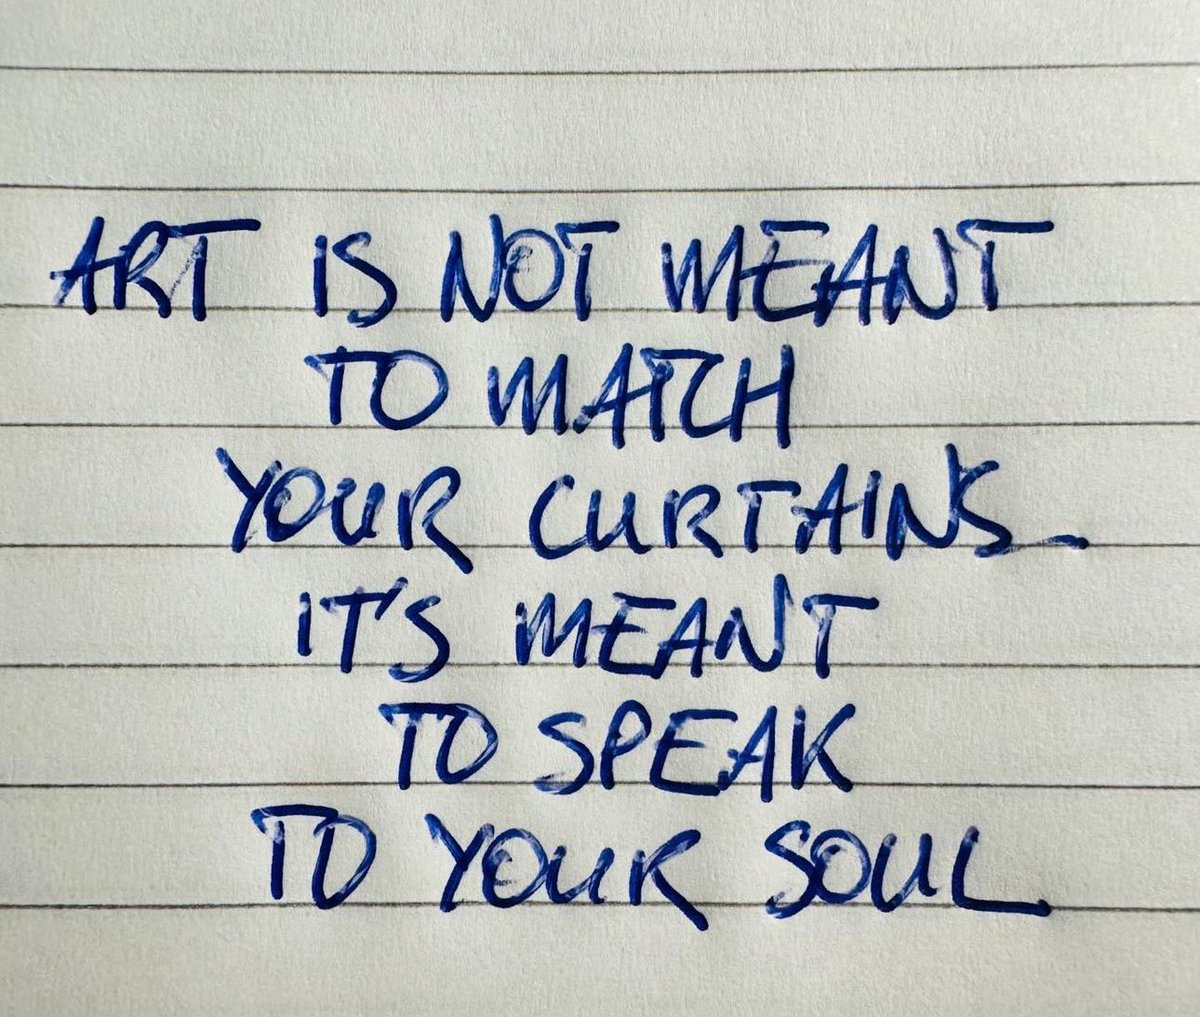 ART IS NOT MEANT
TO MATCH
YOUR CURTAINS_
IT'S MEANT
TO SPEAK
TO YOUR SOUL